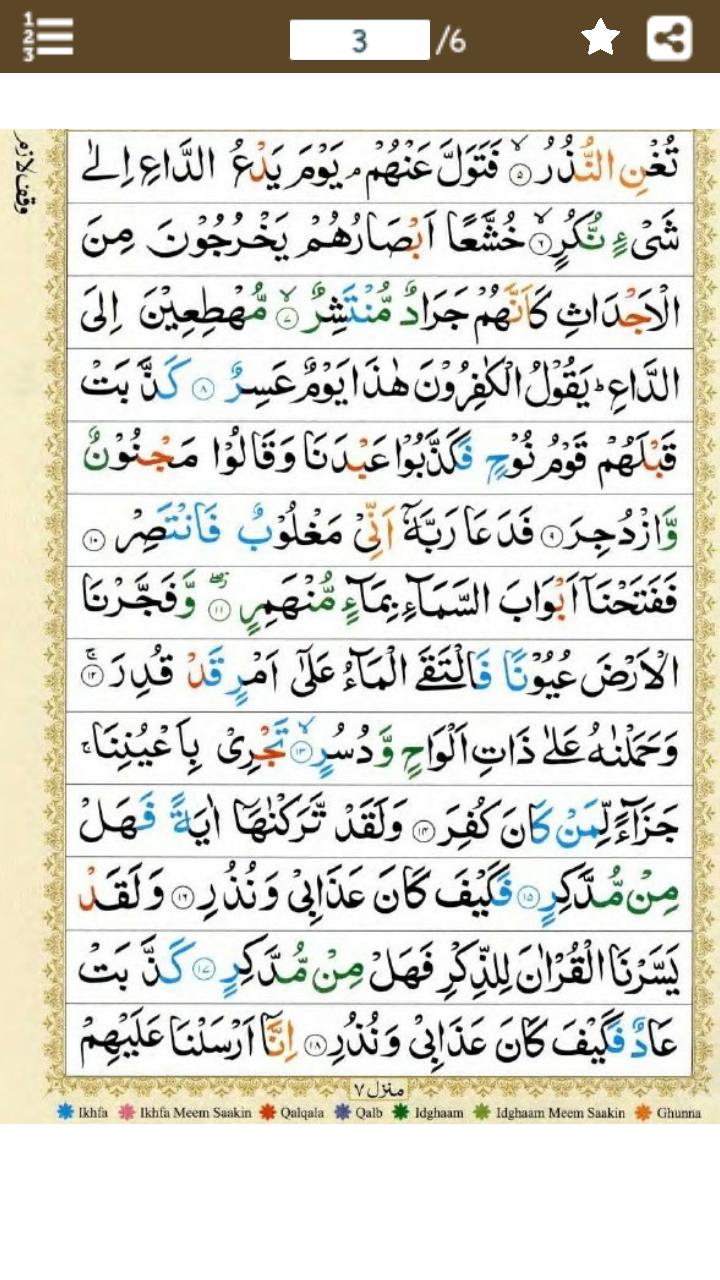 1
2
3
3 /6
وقف لازم
تُغْنِ النُّذُرُ ۙ‏﴿۵﴾ فَتَوَلَّ عَنْهُمْ ۘ يَوْمَ يَدْعُ الدَّاعِ اِلٰى
شَىْءٍ نُّكُرٍ ۙ‏﴿۶﴾ خُشَّعًا اَبْصَارُهُمْ يَخْرُجُوْنَ مِنَ
الْاَجْدَاثِ كَاَنَّهُمْ جَرَادٌ مُّنْتَشِرٌ ۙ‏﴿۷﴾ مُّهْطِعِيْنَ اِلَى
الدَّاعِ ؕ يَقُوْلُ الْكٰفِرُوْنَ هٰذَا يَوْمٌ عَسِرٌ ﴿۸﴾ كَذَّبَتْ
قَبْلَهُمْ قَوْمُ نُوْحٍ فَكَذَّبُوْا عَبْدَنَا وَقَالُوْا مَجْنُوْنٌ
وَّازْدُجِرَ ﴿۹﴾ فَدَعَا رَبَّهٗۤ اَنِّىْ مَغْلُوْبٌ فَانْتَصِرْ ﴿۱۰﴾
فَفَتَحْنَاۤ اَبْوَابَ السَّمَآءِ بِمَآءٍ مُّنْهَمِرٍ ۖ ﴿۱۱﴾ وَّفَجَّرْنَا
الْاَرْضَ عُيُوْنًا فَالْتَقَى الْمَآءُ عَلٰٓى اَمْرٍ قَدْ قُدِرَ ۚ‏﴿۱۲﴾
وَحَمَلْنٰهُ عَلٰى ذَاتِ اَلْوَاحٍ وَّدُسُرٍ ۙ‏﴿۱۳﴾ تَجْرِىْ بِاَعْيُنِنَا ۚ
جَزَآءً لِّمَنْ كَانَ كُفِرَ ﴿۱۴﴾ وَلَقَدْ تَّرَكْنٰهَاۤ اٰيَةً فَهَلْ
مِنْ مُّدَّكِرٍ ﴿۱۵﴾ فَكَيْفَ كَانَ عَذَابِىْ وَنُذُرِ ﴿۱۶﴾ وَلَقَدْ
يَسَّرْنَا الْقُرْاٰنَ لِلذِّكْرِ فَهَلْ مِنْ مُّدَّكِرٍ ﴿۱۷﴾ كَذَّبَتْ
عَادٌ فَكَيْفَ كَانَ عَذَابِىْ وَنُذُرِ ﴿۱۸﴾ اِنَّاۤ اَرْسَلْنَا عَلَيْهِمْ
منزل ۷
Ikhfa Ikhfa Meem Saakin Qalqala Qalb Idghaam Idghaam Meem Saakin Ghunna